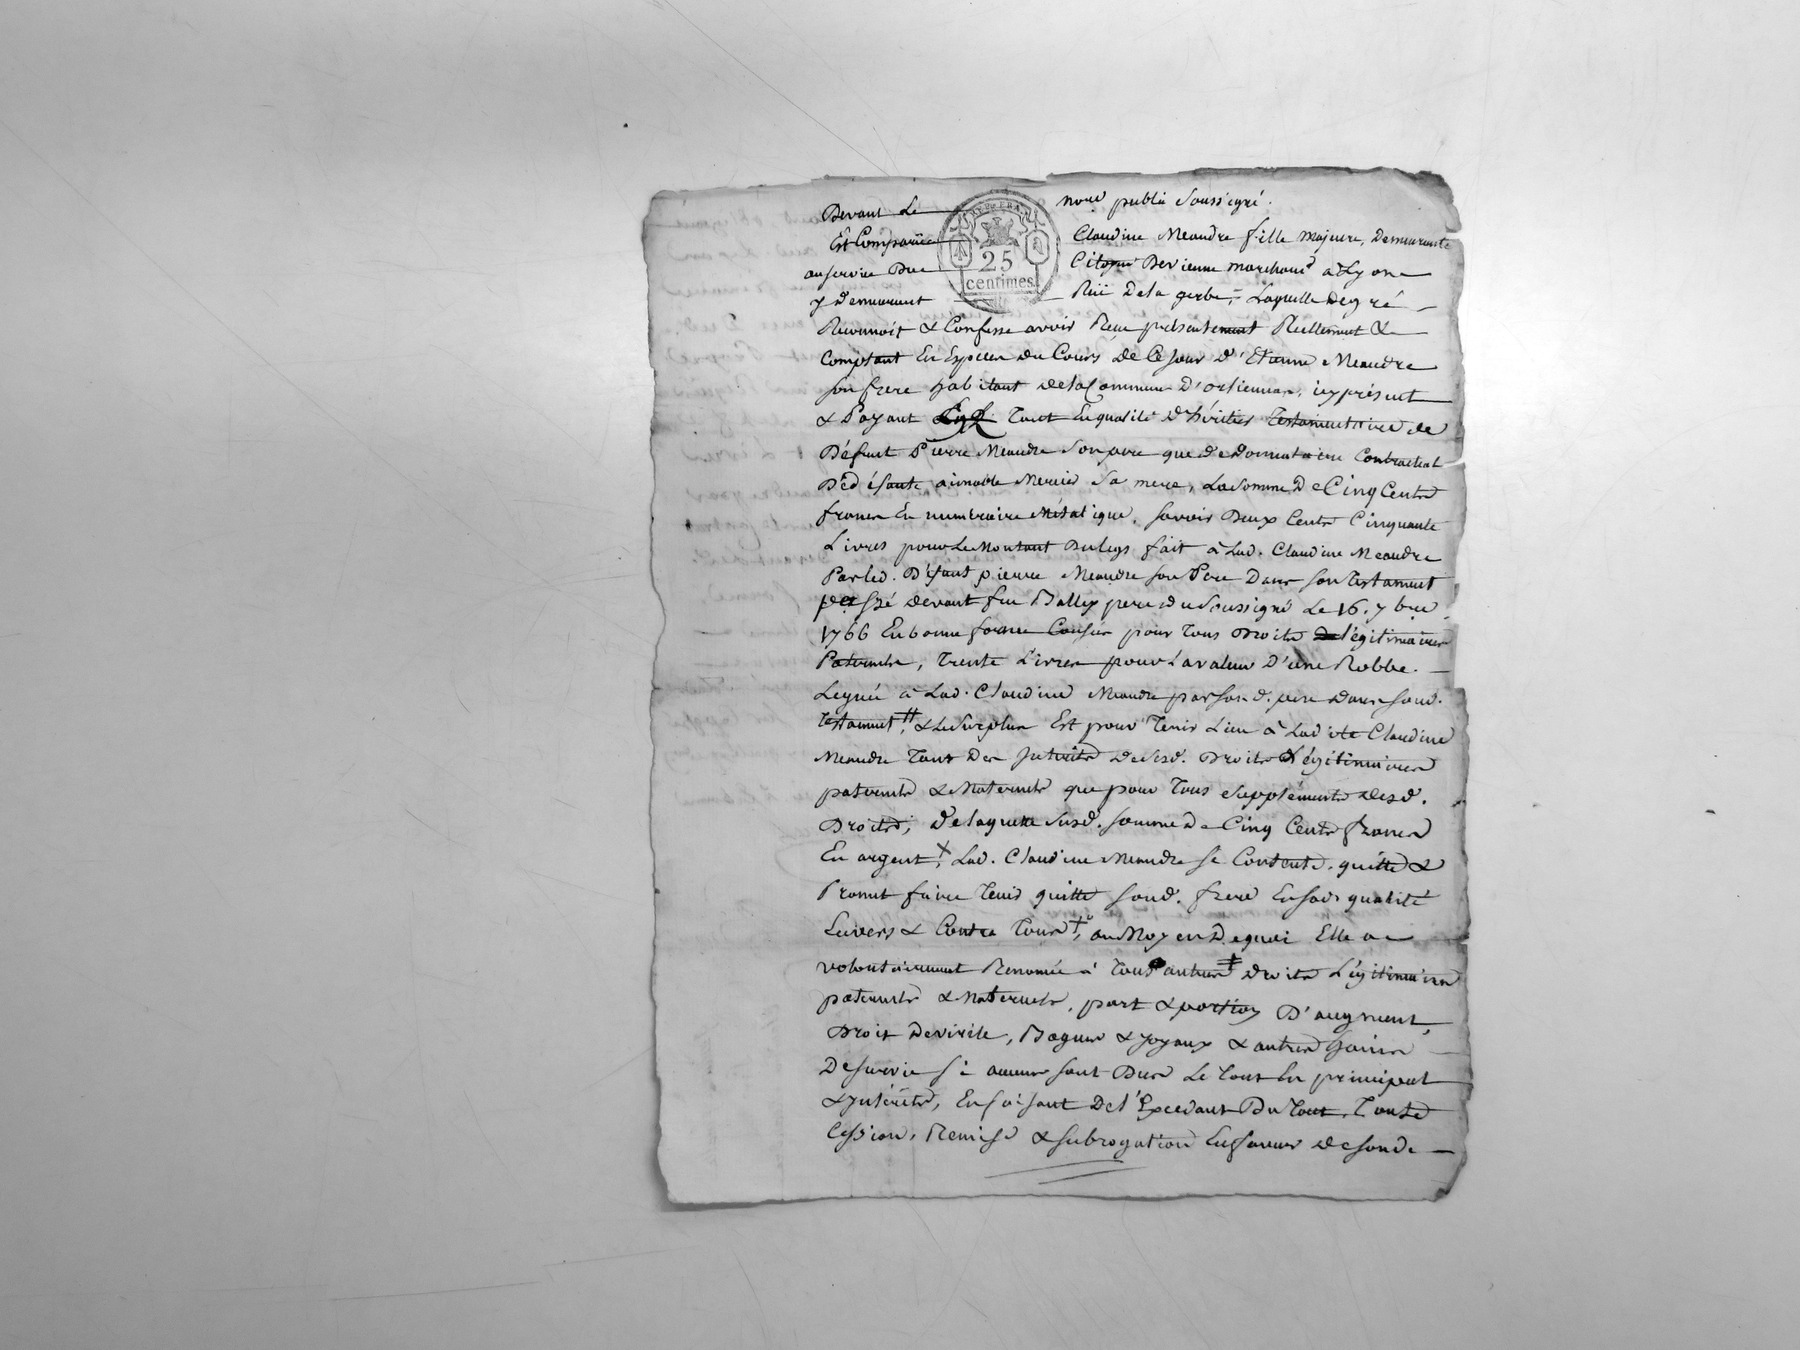 Devant Le nore public soussigné.
Est Comparüe Claudine Meandre fille majeure, Demeurante
au service Du Citoyen Devienne marchand à Lyon
y Demeurant Rüe De la gerbe, Laquelle De gré
Reconnoit & Confesse avoir Reçu présentement Reellement &
Comptant En Especes du Cours de Ce jour d'Etienne Meandre
son frere habitant de la Commune d', icy présent
& Payant Tant En qualité d'héritier testamentaire de
Défunt Pierre Meandre son pere que de Donnataire Contractuel
De défante aimable Mercier sa mere, La somme De Cinq Cents
francs En numeraire Métalique, savoir Deux Cents Cinquante
Livres pour Le Montant Du legs fait à Lad. Claudine Meandre
Par led. Défunt pierre Meandre son Pere Dans son testament
passé devant feu pere du soussigné Le 16. 7bre
1766 En bonne forme pour tous Droits Légitimaires
Paternels, Trente Livres pour La valeur D'une Robbe
Leguée à Lad. Claudine Meandre par son d. pere Dans sond.
testament, & Le surplus Est pour Tenir Lieu à Ladite Claudine
Meandre Tant Des Interêts De sesd. Droits Légitimaires
paternels & Maternels que pour Tous suppléments desd.
Droits, De laquelle susd. somme De Cinq Cents francs
En argent, Lad. Claudine Meandre se Contente, quitte &
Promet faire Tenir quitte sond. frere En sad. qualité
Envers & Contre Tous, au Moyen De quoi Elle a
volontairement Renoncé à Tous autres Droits Légitimaires
paternels & Maternels, part & portion D'augment,
Droit De virile, Bagues & joyaux & autres Gains
De survie si aucuns sont Dus Le Tout En principal
& Intérêts, En faisant De l'Excedant Du Tout, Toute
Cession, Remise & subrogation En faveur de sond.
25
centimes